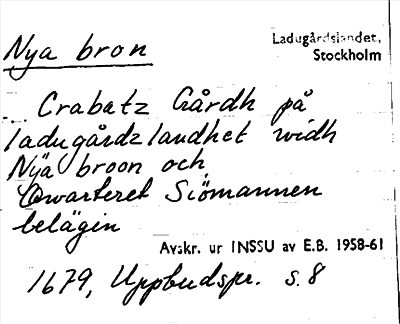 Nya bron
Ladugårdslandet,
Stockholm
... Crabatz Gårdh på
ladugårdz landhet widh
Nÿa broon och
Qwarteret Siömannen
belägin
Avskr. ur INSSU av E.B. 1958-61
1679, Uppbudspr. s. 8